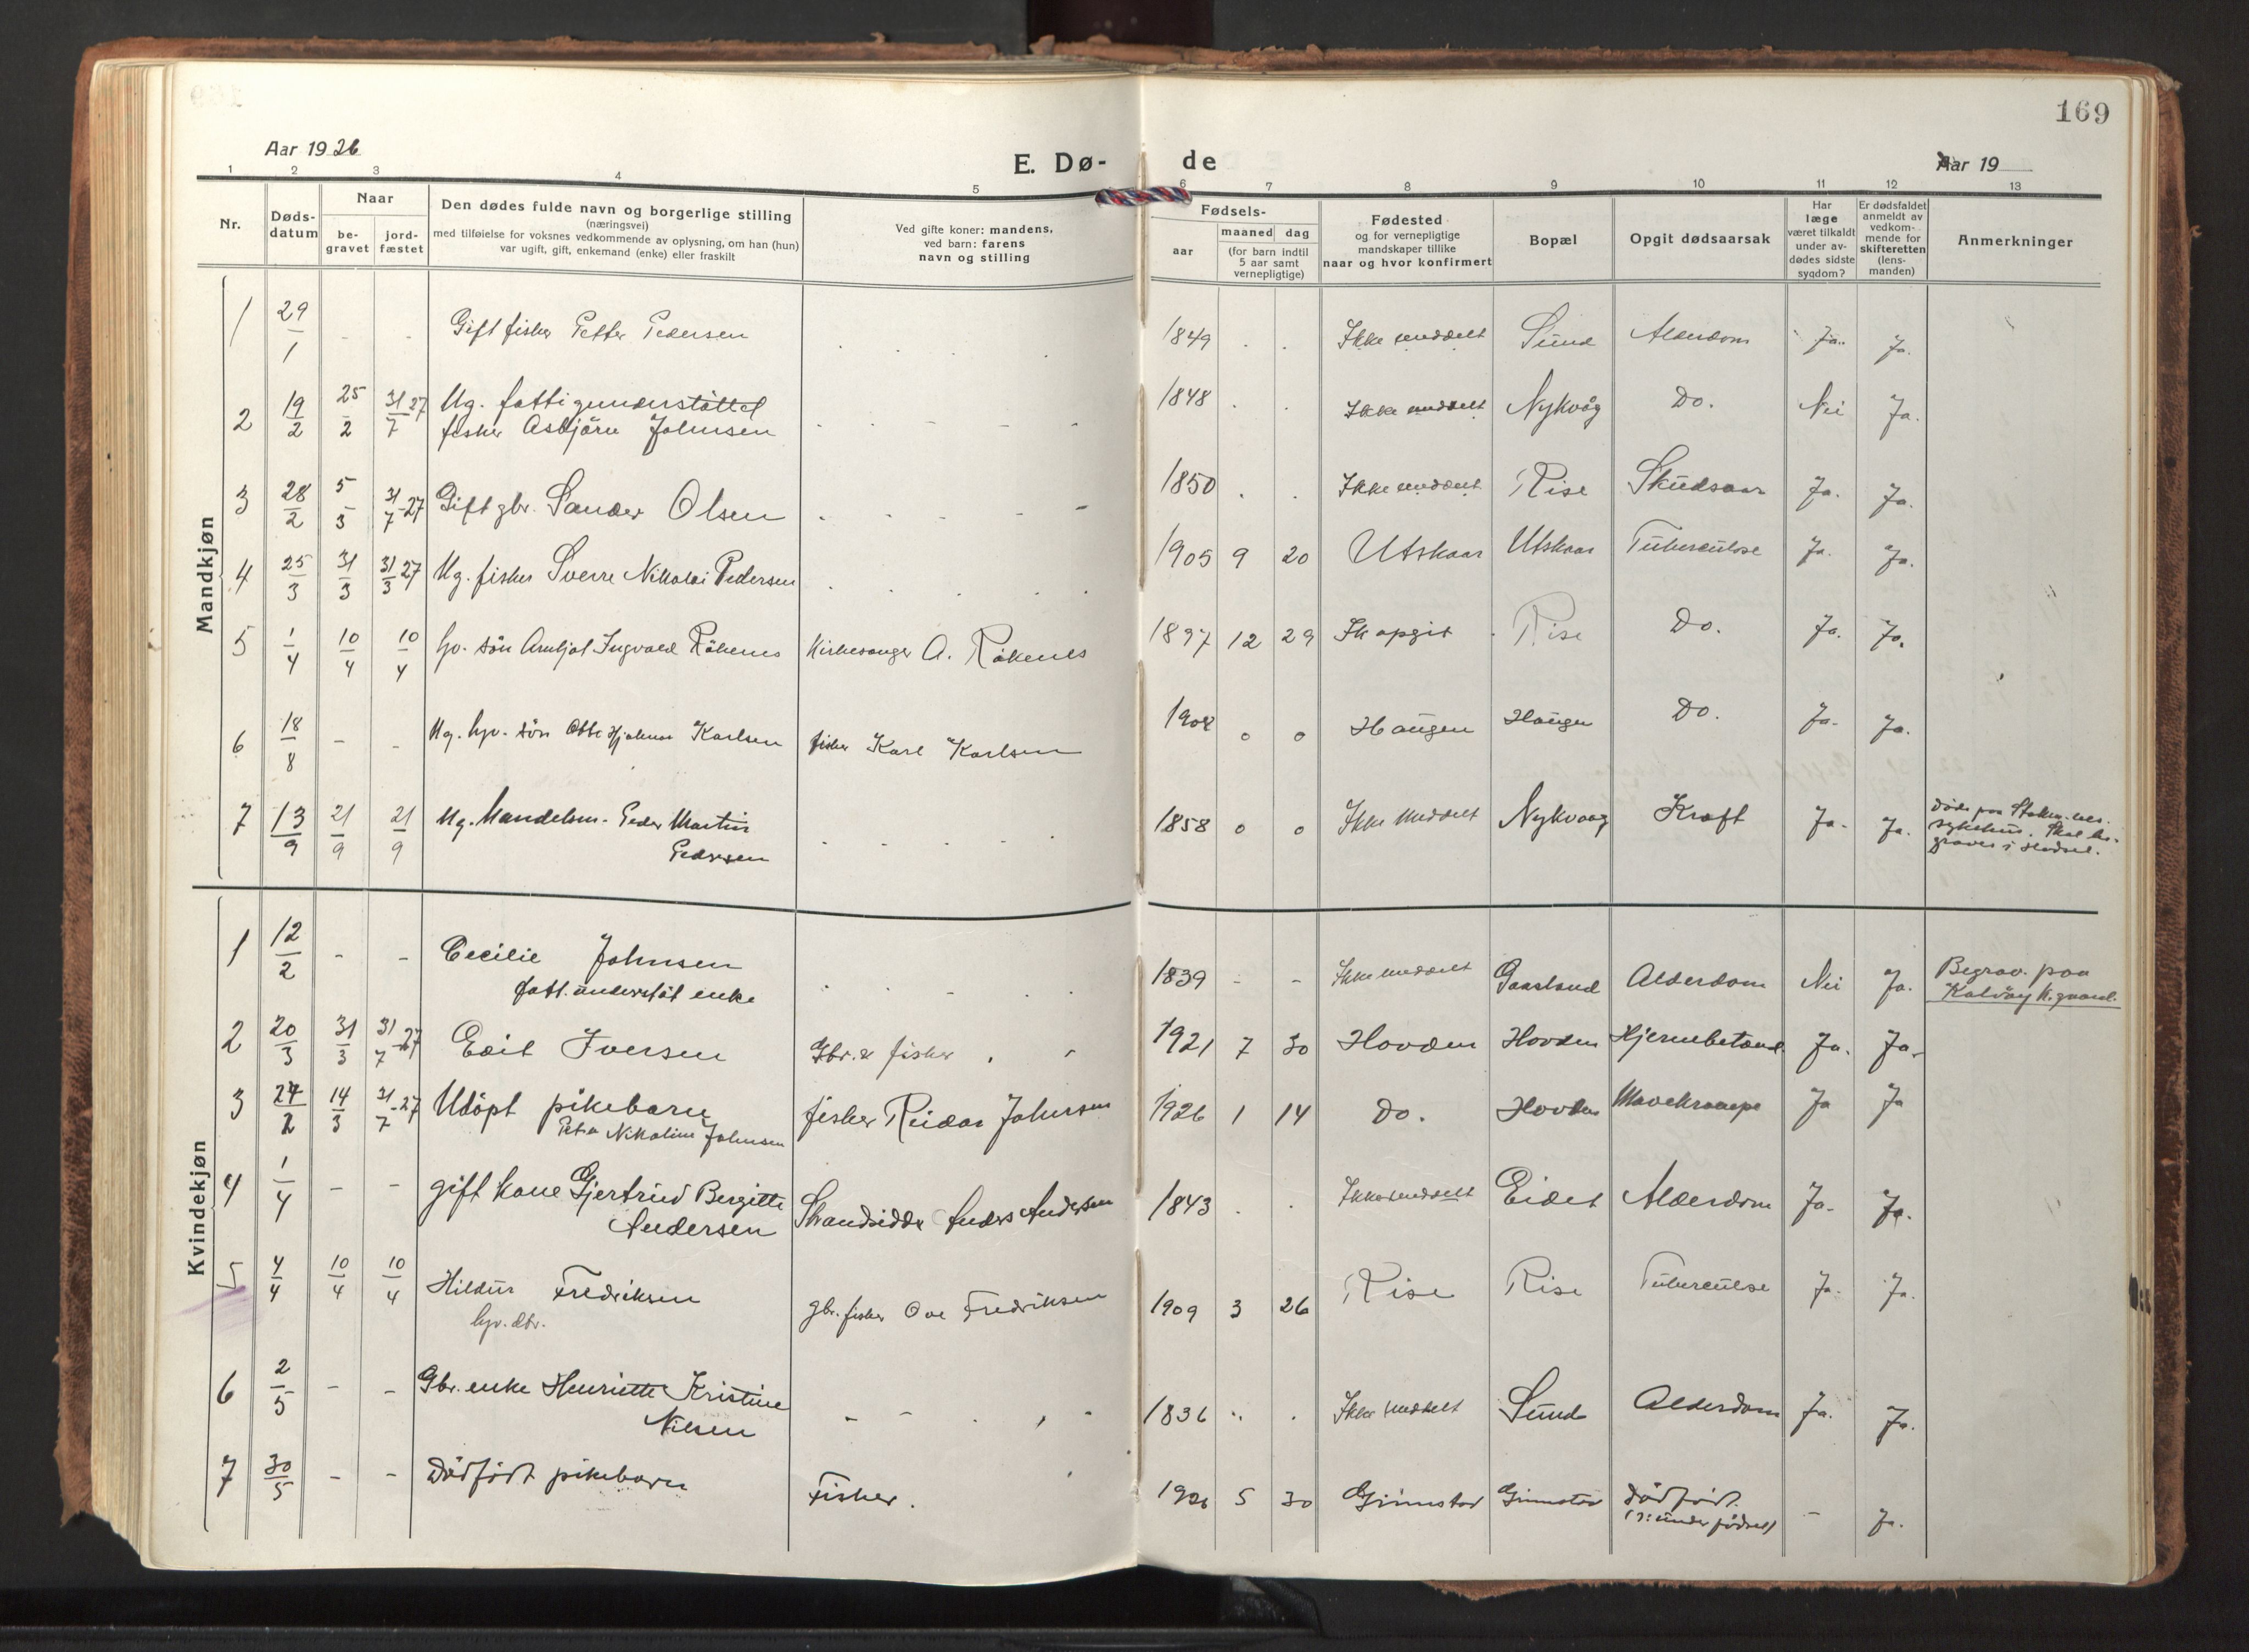 169
Aar 1926
E. Dø-
de
Aar 19
1 2 3 4 5 6 7 8 9 10 11 12 13
Nr.
Døds-
datum
Naar
be-
gravet
jord-
fæstet
Den dødes fulde navn og borgerlige stilling
(næringsvei)
med tilføielse for voksnes vedkommende av oplysning, om han (hun)
var ugift, gift, enkemand (enke) eller fraskilt
Ved gifte koner: mandens,
ved barn: farens
navn og stilling
Fødsels-
aar
maaned dag
(for barn indtil
5 aar samt
vernepligtige)
Fødested
og for vernepligtige
mandskaper tillike
naar og hvor konfirmert
Bopæl
Opgit dødsaarsak
Har
læge
været tilkaldt
under av-
dødes sidste
sygdom?
Er dødsfaldet
anmeldt av
vedkom-
mende for
skifteretten
(lens-
manden)
Anmerkninger
Mandkjøn
1 29/1 - - Gift fisker Petter Pedersen 1849 Ikke meddelt Sund Alderdom Ja. Ja.
2 19/2 25/2 31/7 27 Ug. fattigunderstøttet
fisker Asbjörn Johnsen 1848 Ikke meddelt Nykvåg Do. Nei Ja.
3 28/2 5/3 31/7-27 Gift gbr. Sander Olsen 1850 Ikke meddelt Rise Skudsaar Ja. Ja.
4 25/3 31/3 31/3 27 Ug. fisker Sverre Nikolai Pedersen 1905 9 20 Utskaar Utskaar Tuberculose Ja. Ja.
5 1/4 10/4 10/4 hv. sön Ingvald Rökenes Kirkesanger A. Rökenes 1897 12 29 Ik opgit Rise Do. Ja. Ja.
6 18/8 - - Ug. hjv. sön Otto Hjalmar Karlsen fisker Karl Karlsen 1902 0 0 Haugen Haugen Do. Ja. Ja.
7 13/9 21/9 21/9 Ug. Handelsm. Peder Martin
Pedersen 1858 0 0 Ikke Meddelt Nykvaag Kræft Ja. Ja. döde paa Stokm.nes.
sykehus. Skal be-
graves i Hadsel.
Kvindekjøn
1 12/2 - - Cecilie Johnsen
fatt. understöt enke 1839 - - Ikke meddelt Gaasland Alderdom Nei Ja. Begrav. paa
2 20/3 31/3 31/7-27 Edit Iversen Gbr. & fisker 1921 7 30 Hovden Hovden Hjernebetænd. Ja. Ja.
3 27/2 14/3 31/7-27 Udöpt pikebarn
Petra Nikoline Johnsen fisker Reidar Johnsen 1926 1 14 Do. Hovden Mavekrampe Ja Ja
4 1/4 - - gift kone Gjertrud Bergitte
Andersen Strandsidder Anders Andersen 1843 Ikke meddelt Eidet Alderdom Ja. Ja.
5 4/4 10/4 10/4 Hildur Fredriksen
hjv. dtr. gbr. fisker Ove Fredriksen 1909 3 26 Rise Rise Tuberculose Ja. Ja.
6 2/5 - - Gbr. enke Henriette Kristine
Nilsen 1836 Ikke meddelt Sund Alderdom Ja. Ja.
7 30/5 - - Dödfödt pikebarn Fisker. 1926 5 30 Grimstad Grimstad Dödfödt.
(o: under födsel) - Ja.